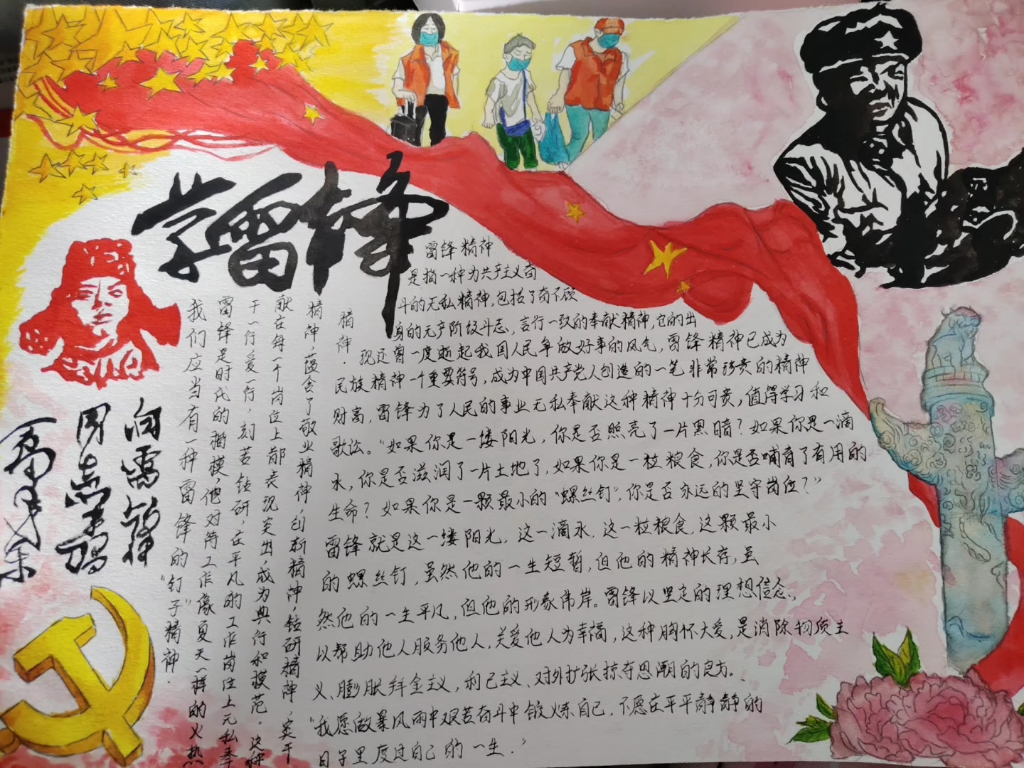 学雷锋
向雷锋
同志学习
毛泽东
我们应当有一种雷锋的"钉子"精神.
雷锋是时代的楷模,他对待工作像夏天一样的火热
干一行爱一行,刻苦钻研,在平凡的工作岗位上无私奉
献在每一个岗位上都表现突出,成为典行和模范.这种
精神蕴含了敬业精神,创新精神,钻研精神,实干
精神.
雷锋精神
是指一种为共产主义奋
斗的无私精神,包括了奋不顾
身的无产阶级斗志,言行一致的奉献精神,它的出
现还曾一度掀起我国人民争做好事的风气,雷锋精神已成为
民族精神一个重要符号,成为中国共产党人创造的一笔非常珍贵的精神
财富,雷锋为了人民的事业无私奉献这种精神十分可贵,值得学习和
歌讼。"如果你是一缕阳光,你是否照亮了一片黑暗?如果你是一滴
水,你是否滋润了一片土地了,如果你是一粒粮食,你是否哺育了有用的
生命?如果你是一颗最小的"螺丝钉",你是否永远的坚守岗位?"
雷锋就是这一缕阳光,这一滴水,这一粒粮食,这颗最小
的螺丝钉,虽然他的一生短暂,但他的精神长存,虽
然他的一生平凡,但他的形象伟岸。雷锋以坚定的理想信念,
以帮助他人服务他人,关爱他人为幸福,这种胸怀大爱,是消除物质主
义、膨胀拜金主义,利己主义、对外扩张掠夺思潮的良方.
"我愿做暴风雨中艰苦奋斗中锻炼自己,不愿在平平静静的
日子里度过自己的一生."